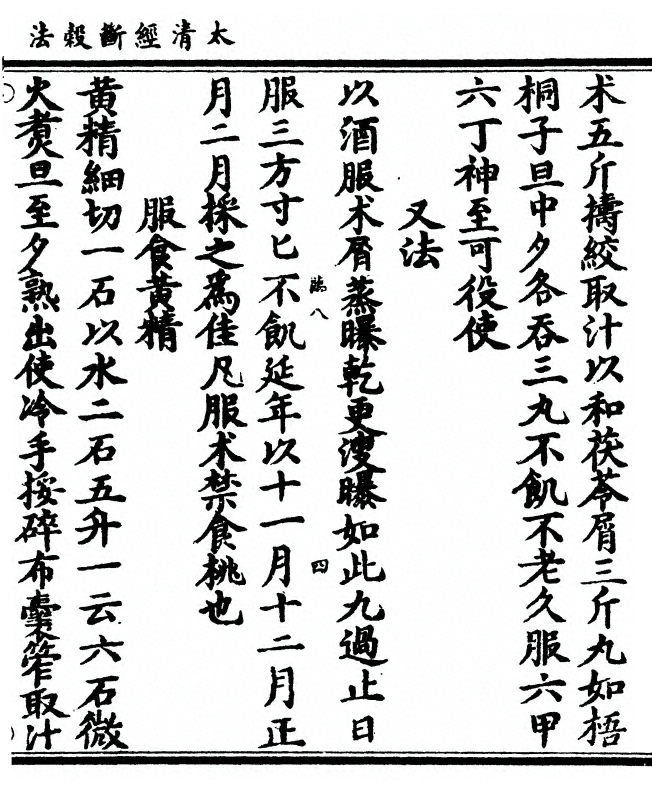 太清經斷穀法
术五斤擣絞取汁以和茯苓屑三斤丸如梧
桐子旦中夕各吞三丸不飢不老久服六甲
六丁神至可役使
又法
以酒服术屑蒸曝乾更溲曝如此九過止日
臨八
四
服三方寸匕不飢延年以十一月十二月正
月二月採之為佳凡服术禁食桃也
服食黃精
黃精細切一石以水二石五升一云六石微
火煑旦至夕熟出使冷手挼碎布囊笮取汁